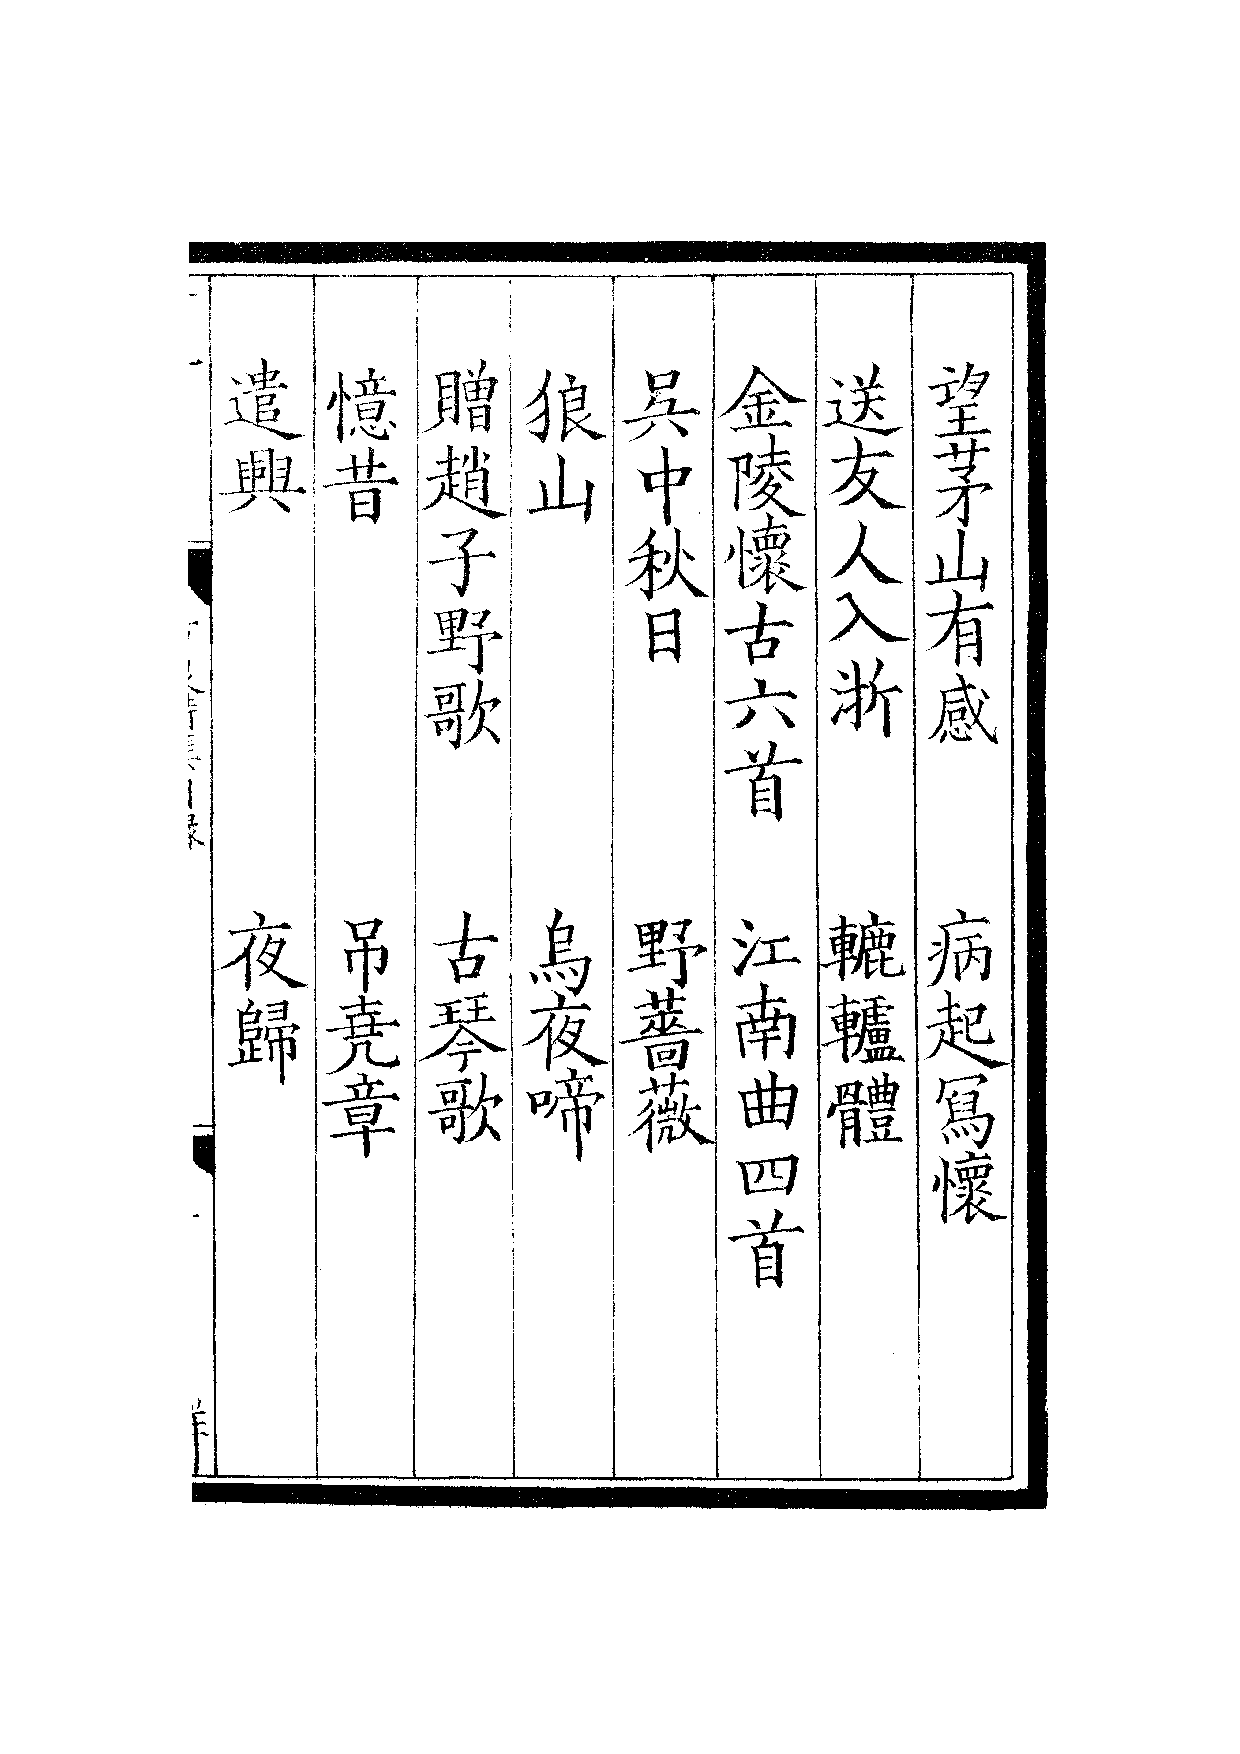 望茅山有感 病起寫懷
送友人入浙 轆轤體
金陵懷古六首 江南曲四首
吳中秋日 野薔薇
狼山 烏夜啼
贈趙子野歌 古琴歌
憶昔 吊堯章
遣興 夜歸